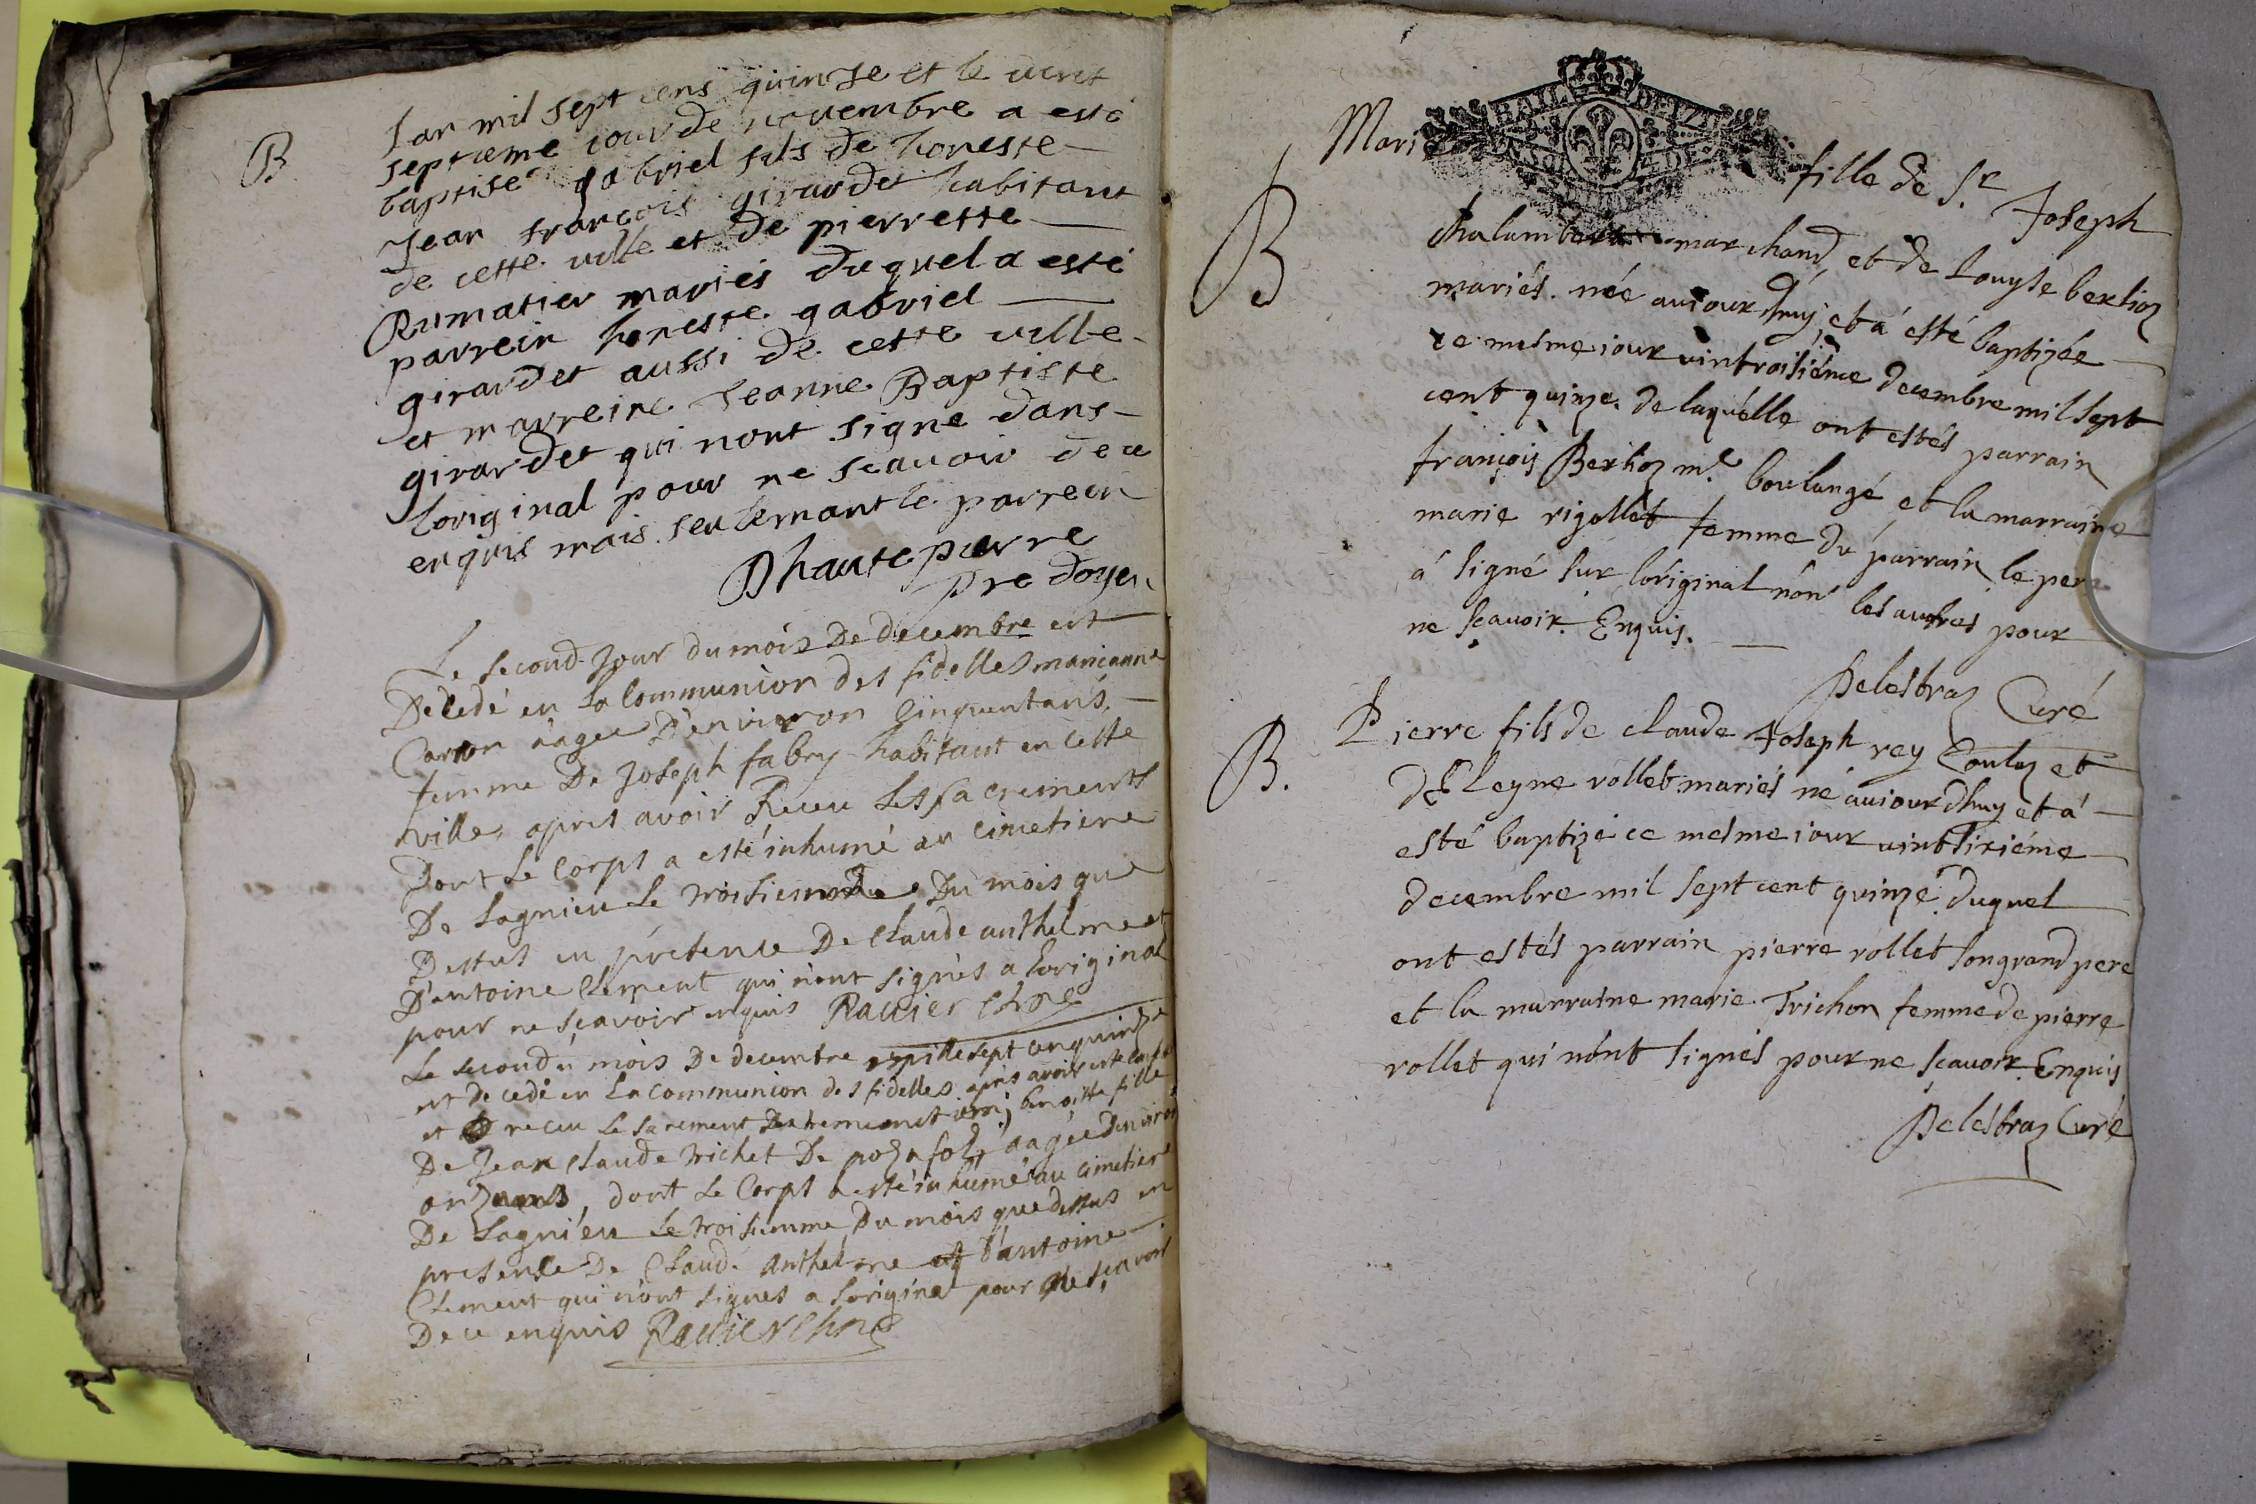 B.
Lan mil sept cens quinse et le vint
septieme jour de novembre a esté
baptisé gabriel fils de honeste
Jean francois girardet habitant
de cette ville et de pierrette
Rumatier mariés duquel a esté
parrein honeste gabriel
girardet aussi de cette ville
et marreine Jeanne Baptiste
girardet qui nont signe dans
loriginal pour ne scavoir de ce
enquis mais seulemant le parrein
Dhautepierre
pre doyen
Le second Jour du mois De decembre est
Decedé en la Communion des fidelles marianne
Carron aagee D'environ Cinquantans,
femme De Joseph fabry habitant en cette
ville, apres avoir Receu Les sacrements
Dont Le Corps a esté inhumé au cimetiere
De Lagnieu Le troisiemme Du mois que
Dessus en presence De Claude anthelme et
D'antoine Clement qui n'ont signés a Loriginal
pour ne sçavoir enquis Ravier
Le second mois De decembre mille sept cent quinze
est Decedé en La Communion des fidelles apres avoir
et receu Le sacrement benoitte fille
De Jean Claude trichet De aagée Denviron
onze ans, dont Le Corps a esté inhumé au cimetiere
De Lagnieu Le troisiemme Du mois que dessus en
presence De Claude Anthelme et D'antoine
Clement qui n'ont signes a Loriginal pour ne sçavoir
De ce enquis Ravier
Mari fille de Sr Joseph
B
Chalambert marchand et de Louyse berlioz
mariés. née aujourdhuy, et á esté baptizée
ce mesme jour vintroisiéme decembre mil sept
cent quinze. de laquelle ont estés parrain
françois Berlioz me boulangé et la marraine
marie rigollet femme du parrain le pere
á signé sur loriginal non les autres pour
ne sçavoir. Enquis.
Delestraz Curé
B.
Pierre fils de claude Joseph rey Coulaz et
dEleyne rollet mariés né aujourdhuy et á
esté baptizé ce mesme jour vintsixiéme
decembre mil sept cent quinze duquel
ont estés parrain pierre rollet son grand pere
et la marraine marie Trichon femme de pierre
rollet qui nont signés pour ne sçavoir Enquis
Delestraz Curé